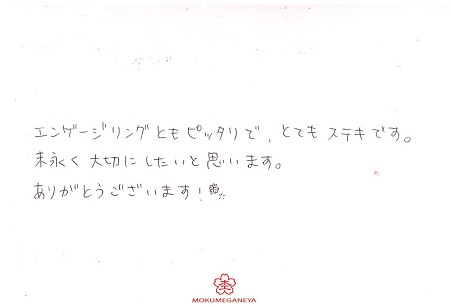 エンゲージリングともピッタリで、とても ステキです。
末永く 大切に したいと 思います。
ありがとうございます!
MOKUMEGANEYA